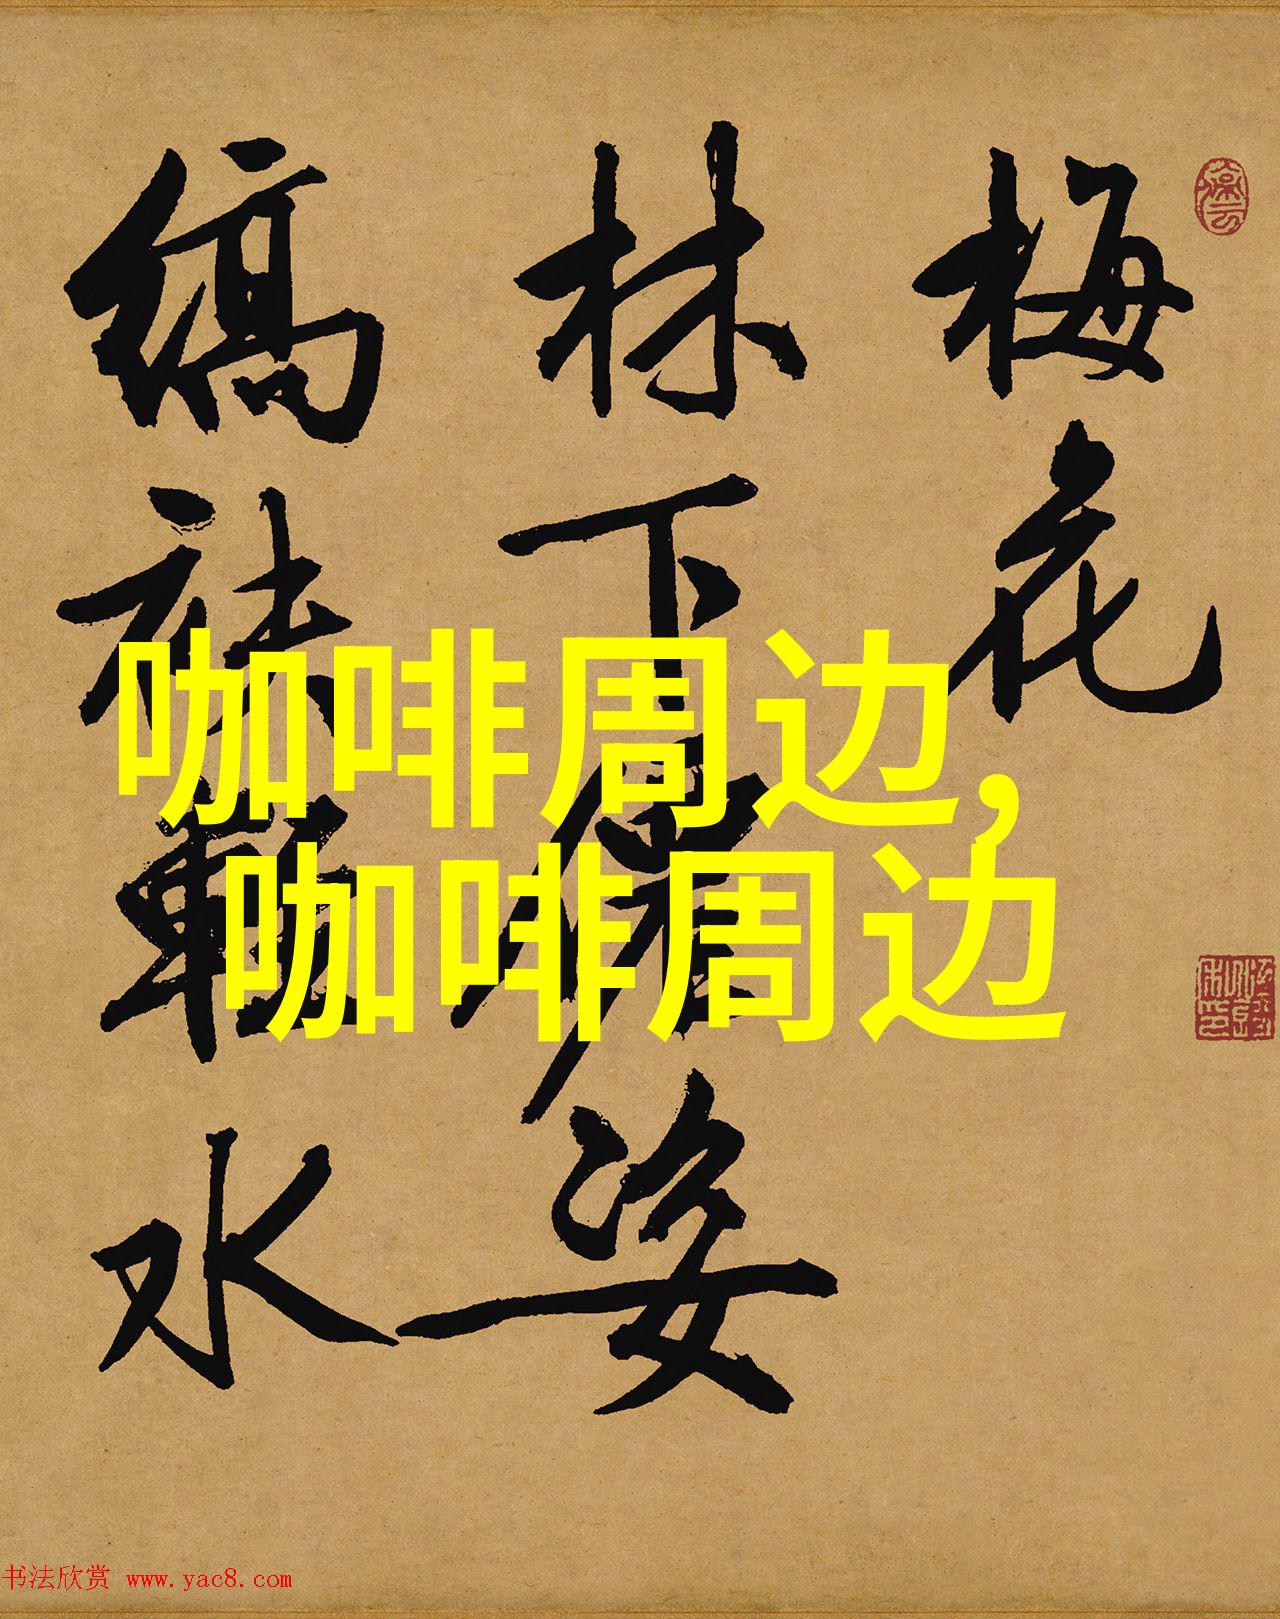 梅花
林下仙姿
缟袂軽水
咖啡周边,
咖啡周边
书法欣赏 www.yac8.com